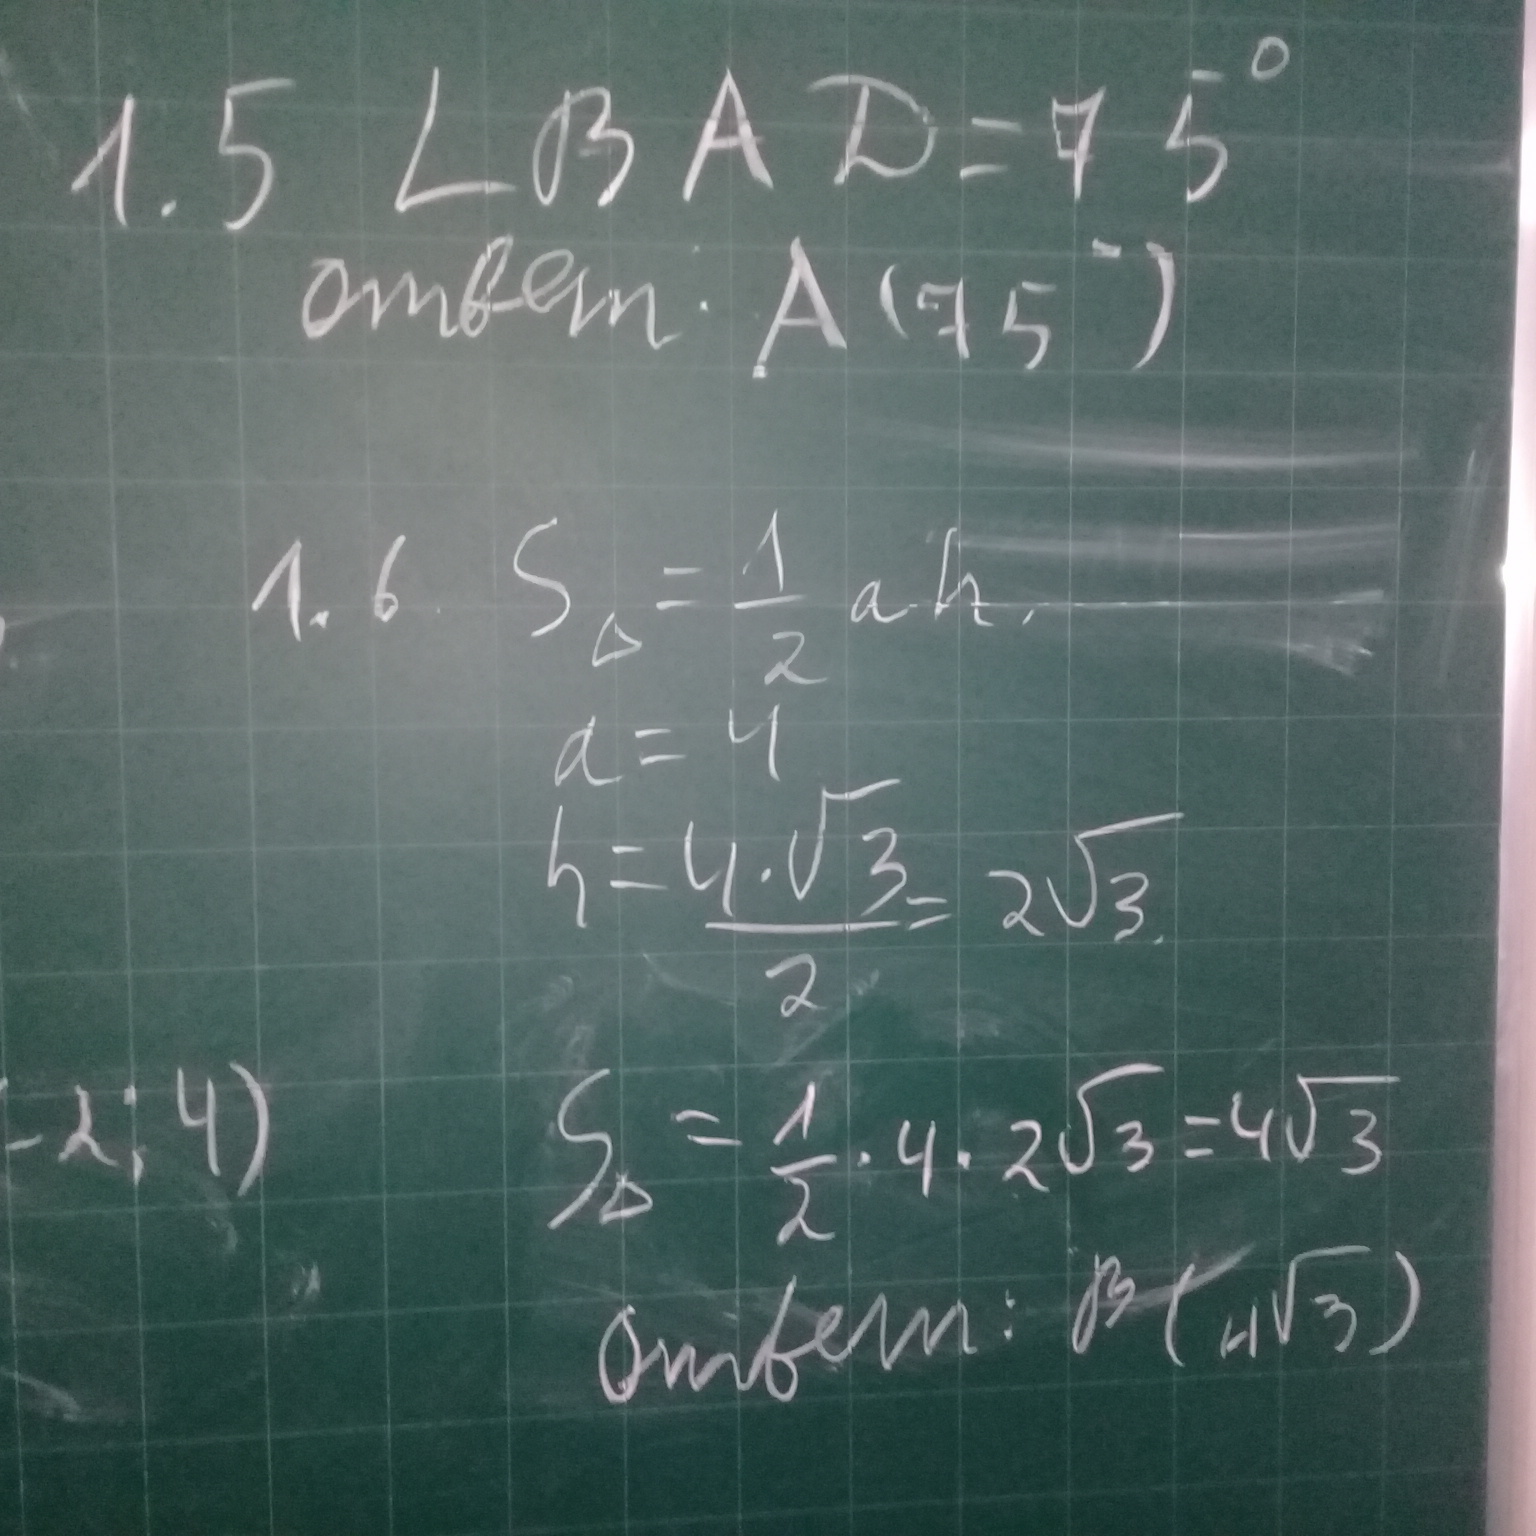 1.5 ∠BAD=75°
ответ: А(75°)
1.6. S△ = 1/2 a·h.
a=4
h = 4·√3/2 = 2√3.
-2; 4)
S△ = 1/2 · 4 · 2√3 = 4√3
Ответ: В(4√3)